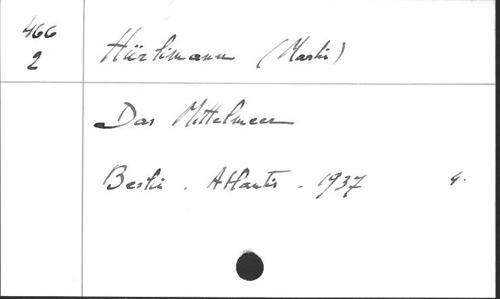 466
2
Hürlimann (Martin)
Das Mittelmeer
Berlin. Atlantis. 1937 4.